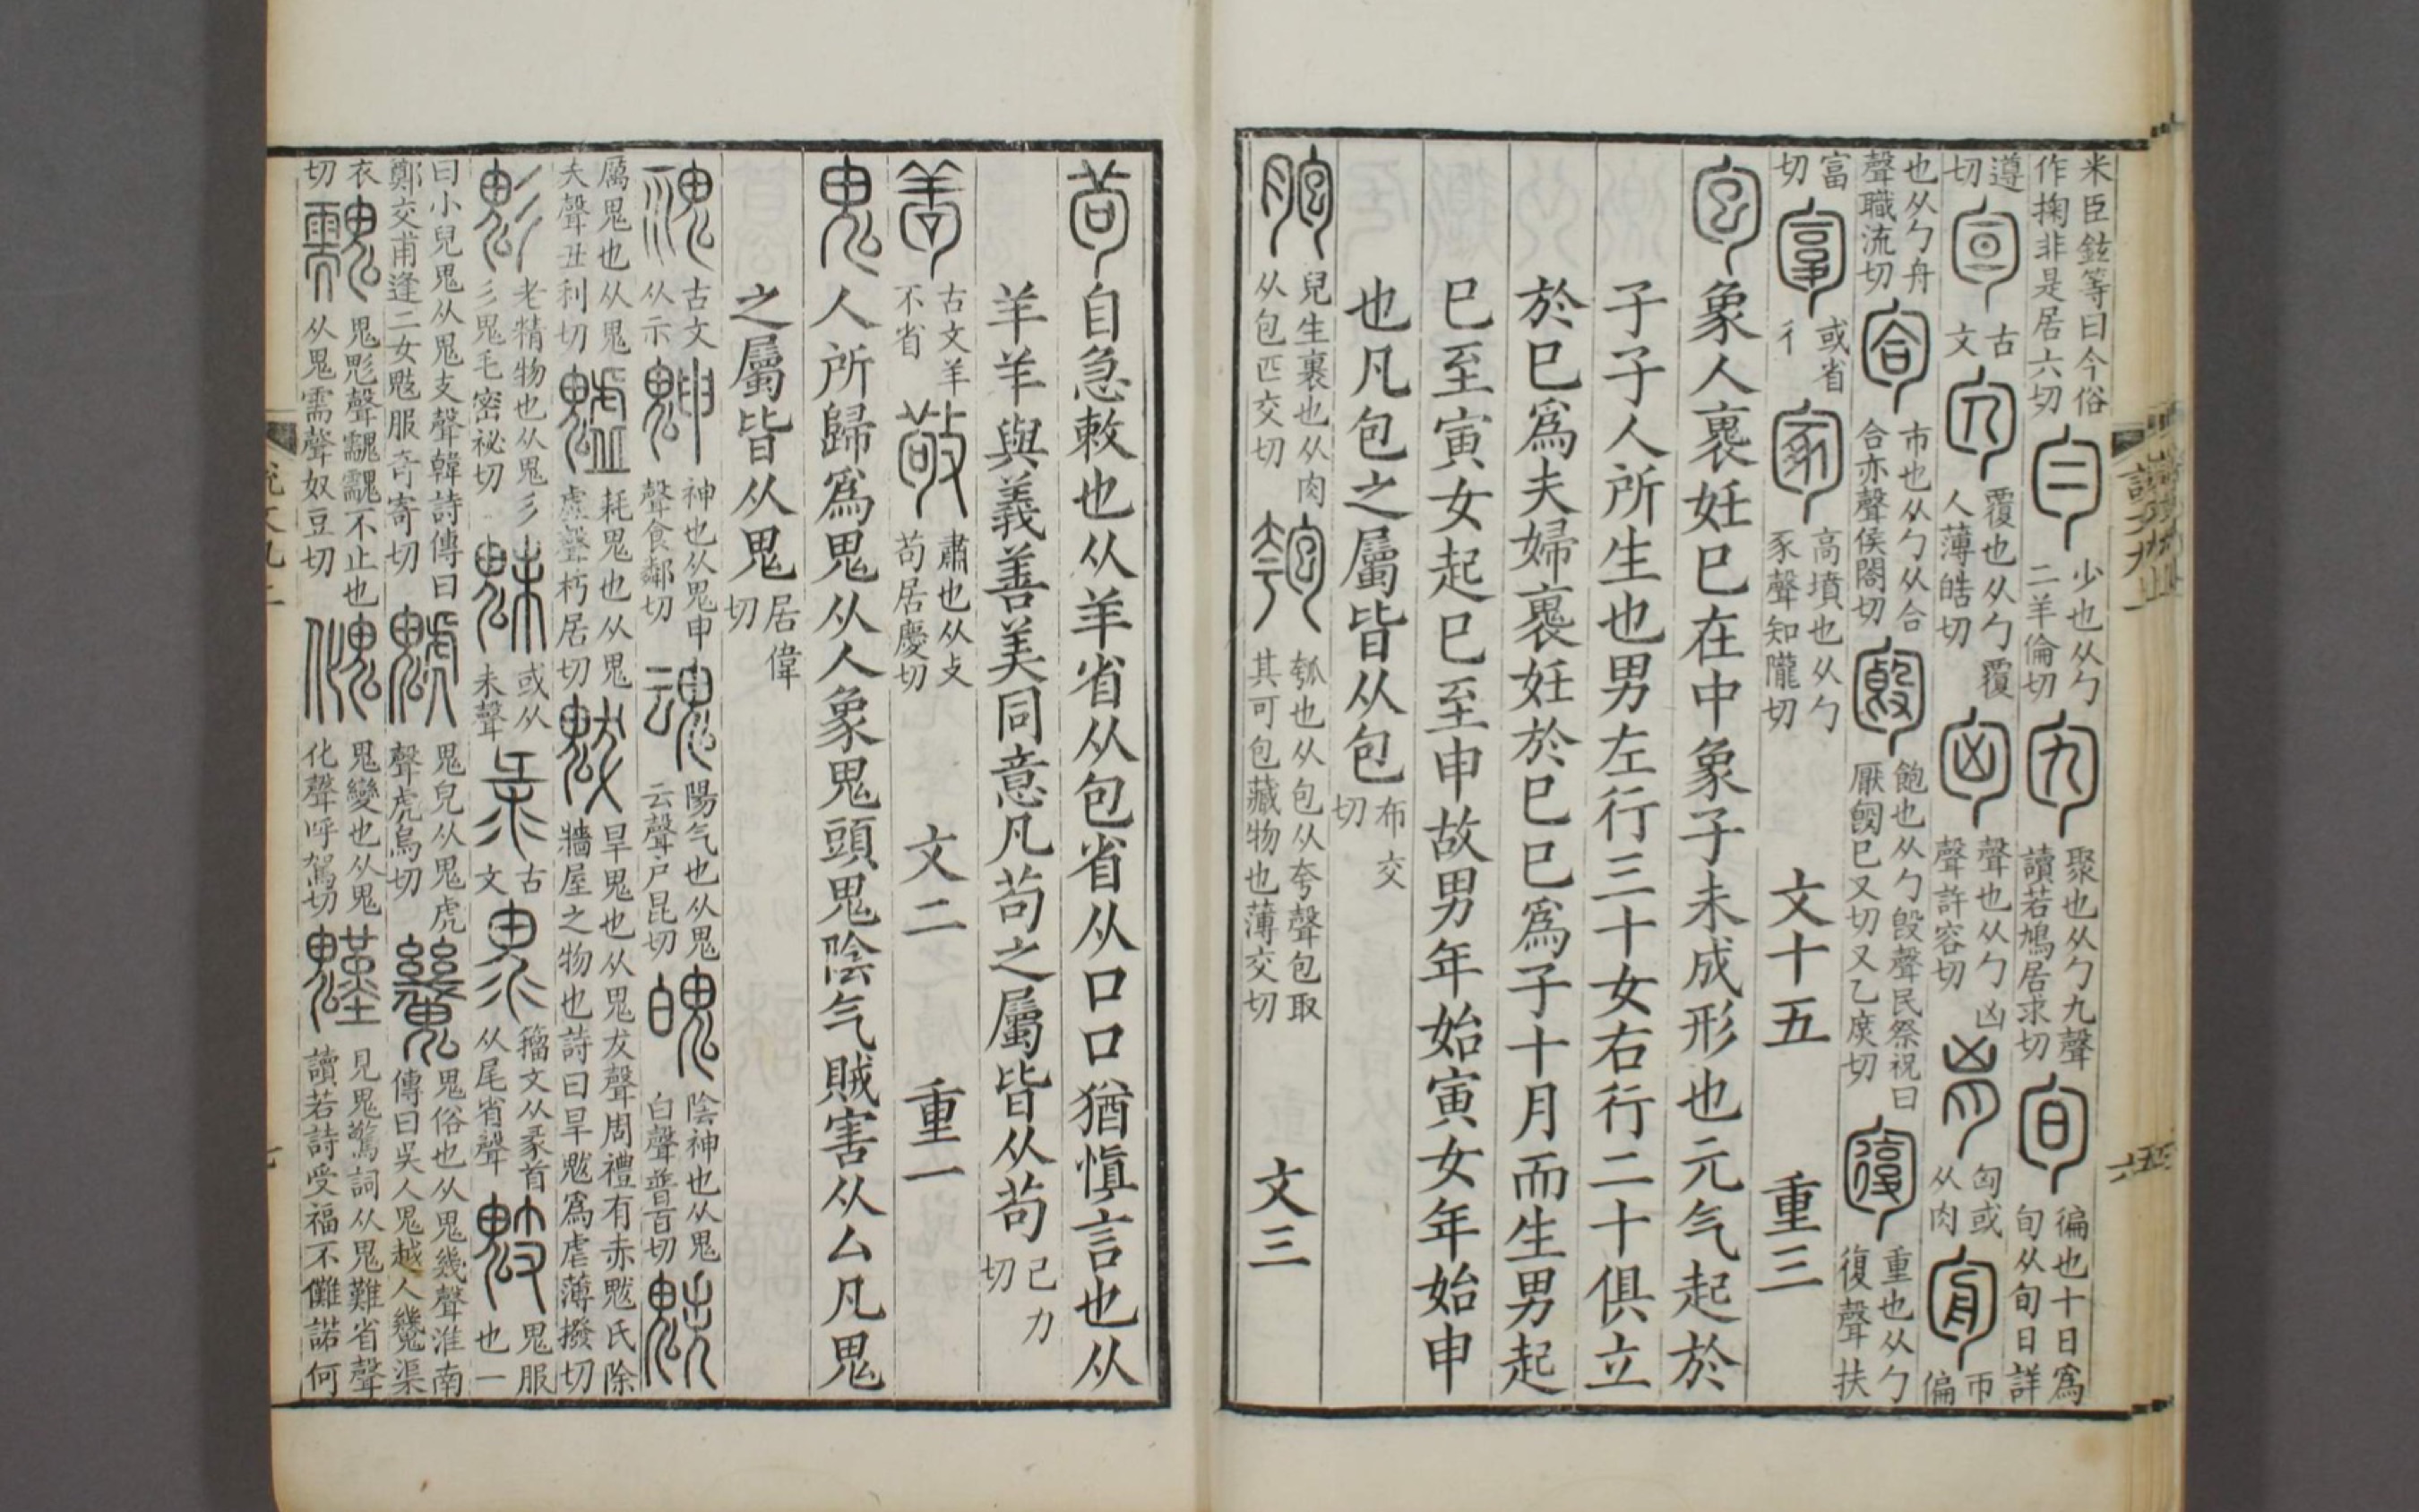 米臣鉉等曰今俗作掬非是居六切勻少也从勹二羊倫切勼聚也从勹九聲讀若鳩居求切旬徧也十日爲旬从勹日詳
遵切𠣙古文勽覆也从勹覆人薄皓切匈聲也从勹凶聲許容切胷匈或从肉匊帀徧
也从勹舟聲職流切匌帀也从勹从合合亦聲侯閤切匓飽也从勹㲃聲民祭祝曰厭匓巳又切又乙庻切𠣸重也从勹復聲扶
富切𠣾或省彳冢高墳也从勹豖聲知隴切 文十五 重三
包象人褢妊巳在中象子未成形也元气起於
子子人所生也男左行三十女右行二十俱立
於巳爲夫婦褢妊於巳巳爲子十月而生男起
巳至寅女起巳至申故男年始寅女年始申
也凡包之屬皆从包布交切
胞兒生裹也从肉从包匹交切匏瓠也从包从夸聲包取其可包藏物也薄交切 文三
茍自急敕也从羊省从包省从口口猶愼言也从
羊羊與義善美同意凡茍之屬皆从茍己力切
𦍌古文羊不省敬肅也从攴茍居慶切 文二 重一
鬼人所歸爲鬼从人象鬼頭鬼陰气賊害从厶凡鬼
之屬皆从鬼居偉切
䰡古文从示䰠神也从鬼申聲食鄰切魂陽气也从鬼云聲户昆切魄陰神也从鬼白聲普百切魅
厲鬼也从鬼失聲丑利切魖耗鬼也从鬼虛聲朽居切魃旱鬼也从鬼犮聲周禮有赤魃氏除牆屋之物也詩曰旱魃爲虐薄撥切
鬽老精物也从鬼彡彡鬼毛密祕切魅或从未聲𢑗古文𩲡籀文从彖首从尾省聲鬾鬼服也一
曰小兒鬼从鬼支聲韓詩傳曰鄭交甫逢二女鬾服奇寄切䰧鬼皃从鬼虎聲虎烏切䰴鬼俗也从鬼幾聲淮南傳曰吳人鬼越人䰴渠
衣切䰰鬼鬽聲䰰䰰不止也从鬼需聲奴豆切魤鬼變也从鬼化聲呼駕切𩴥見鬼驚詞从鬼難省聲讀若詩受福不儺諾何
切